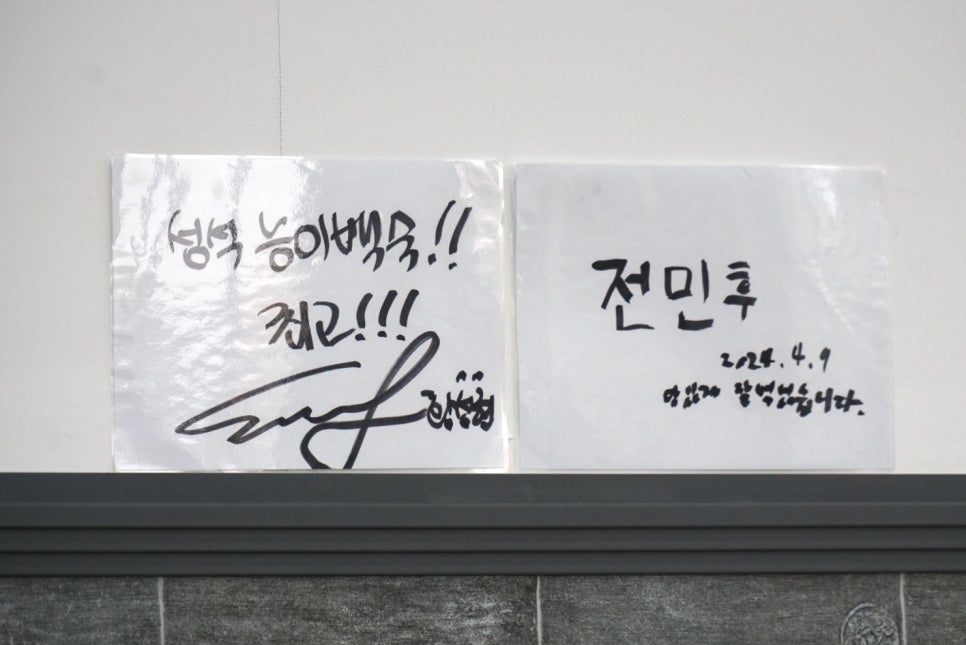 성석 능이백숙!!
최고!!!
전민후
2024.4.9
맛있게 잘 먹었습니다.